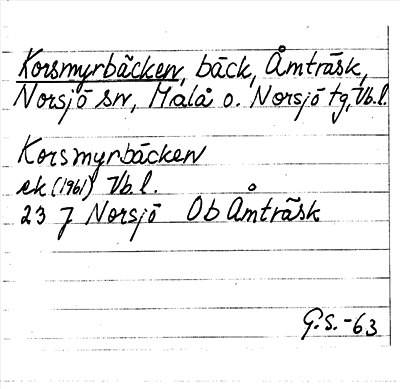 Korsmyrbäcken, bäck, Åmträsk,
Norsjö sn, Malå o. Norsjö tg, Vb.l.
Korsmyrbäcken
ek (1961) Vb.l.
23 J Norsjö Ob Åmträsk
G.S.-63